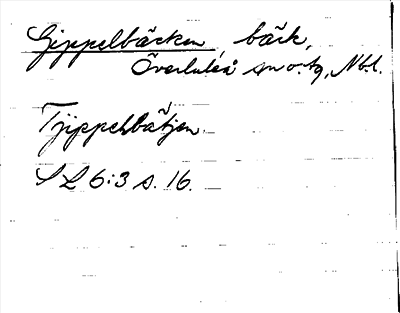 Gippelbäcken, bäck,
Överluleå sn o. tg, Nbl.
Tjippelbätjen.
S L 6:3 s. 16.